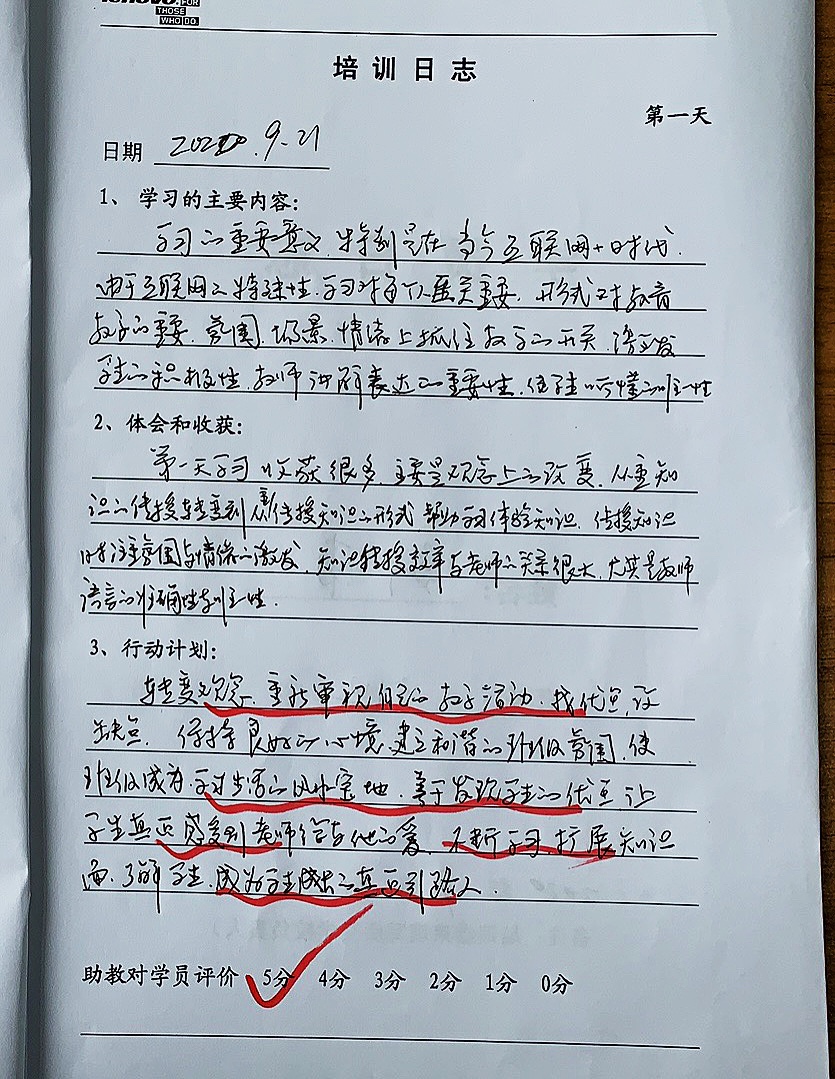 lenovo FOR
THOSE
WHO DO.
培训日志
第一天
日期 2020.9.21
1、学习的主要内容:
学习的重要意义,特别是在当今互联网+时代.
由于互联网的特殊性,学习对每个人至关重要,形式对教育
教学的重要,氛围、场景、情绪上抓住教学的开关,激发
学生的积极性,教师讲解表达的重要性,使学生听懂的
2、体会和收获:
第一天学习收获很多,主要是观念上的改变,从重知
识的传授转变到重传授知识的形式,帮助学习体验知识,传授知识
时注重氛围与情绪的激发,知识转接效率与老师的关系很大,尤其是教师
语言的准确性
3、行动计划:
转变观念,重新审视自己的教学活动,找优点,改
缺点,保持良好的心境,建立和谐的班级氛围,使
班级成为学习生活的风水宝地,善于发现学生的优点,让
学生真正感受到老师给与他的爱,不断学习,扩展知识
面,了解学生,成为学生成长的真正引路人.
助教对学员评价 5分 4分 3分 2分 1分 0分